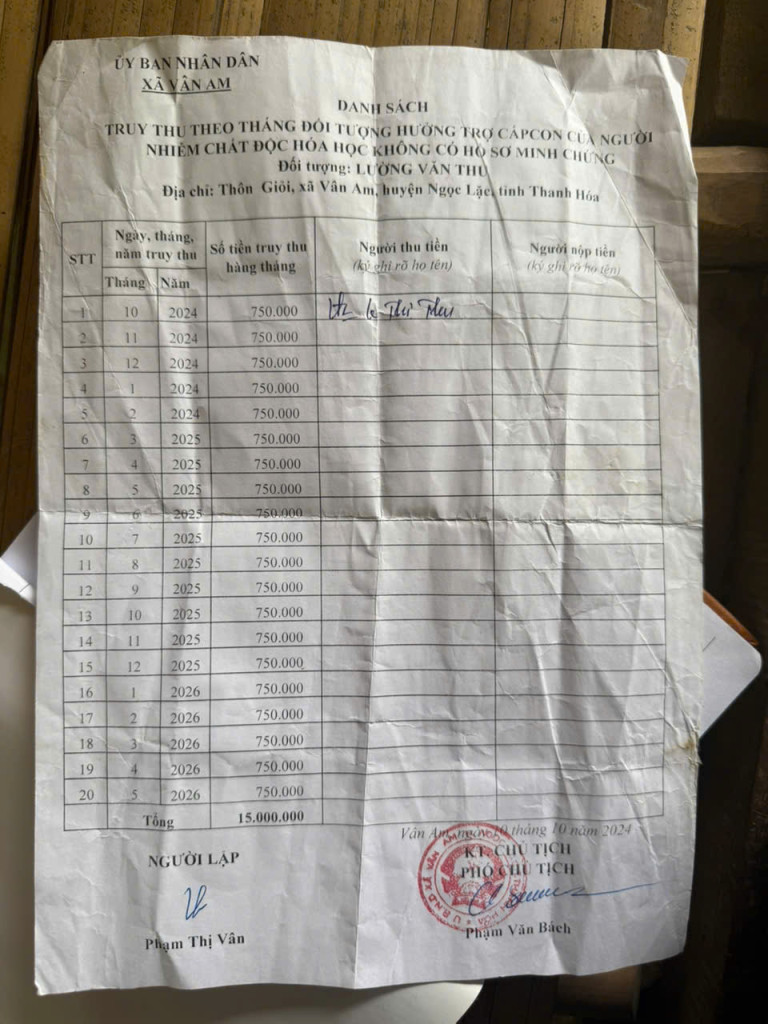 ỦY BAN NHÂN DÂN
XÃ VÂN AM
DANH SÁCH
TRUY THU THEO THÁNG ĐỐI TƯỢNG HƯỞNG TRỢ CẤPCON CỦA NGƯỜI
NHIỄM CHẤT ĐỘC HÓA HỌC KHÔNG CÓ HỒ SƠ MINH CHỨNG
Đối tượng: LƯỜNG VĂN THU
Địa chỉ: Thôn Giỏi, xã Vân Am, huyện Ngọc Lặc, tỉnh Thanh Hóa
STT Ngày, tháng, năm truy thu Số tiền truy thu hàng tháng Người thu tiền (ký ghi rõ họ tên) Người nộp tiền (ký ghi rõ họ tên)
Tháng Năm
1 10 2024 750.000 Thị Thu
2 11 2024 750.000
3 12 2024 750.000
4 1 2024 750.000
5 2 2024 750.000
6 3 2025 750.000
7 4 2025 750.000
8 5 2025 750.000
9 6 2025 750.000
10 7 2025 750.000
11 8 2025 750.000
12 9 2025 750.000
13 10 2025 750.000
14 11 2025 750.000
15 12 2025 750.000
16 1 2026 750.000
17 2 2026 750.000
18 3 2026 750.000
19 4 2026 750.000
20 5 2026 750.000
Tổng 15.000.000
Vân Am, ngày 10 tháng 10 năm 2024
NGƯỜI LẬP
KT. CHỦ TỊCH
PHÓ CHỦ TỊCH
U.B.N.D XÃ VÂN AM
Phạm Thị Vân
Phạm Văn Bách